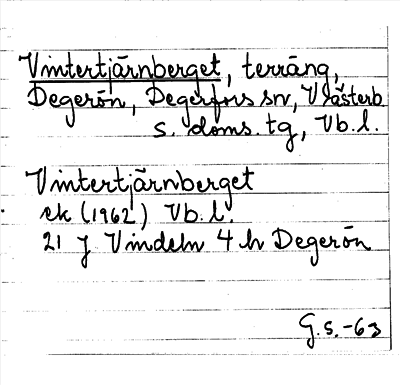 Vintertjärnberget, terräng,
Degerön, Degerfors sn, Västerb
s. doms. tg, Vb. l.
Vintertjärnberget
ek (1962) Vb. l.
21 J Vindeln 4 h Degerön
G. S. -63